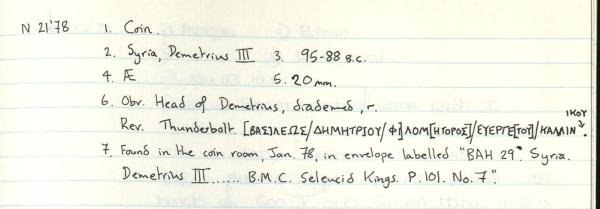 N 21'78 1. Coin.
2. Syria, Demetrius III 3. 95-88 B.C.
4. Æ 5. 20 mm.
6. Obv. Head of Demetrius, diademed, r.
Rev. Thunderbolt. [ΒΑΣΙΛΕΩΣ/ΔΗΜΗΤΡΙΟΥ/Φ]ΛΟΜ[ΗΤΟΡΟΣ]/ΕΥΕΡΓΕ[ΤΟΥ]/ΚΑΛΛΙΝΙΚΟΥ.
7. Found in the coin room, Jan. 78, in envelope labelled "BAH 29. Syria.
Demetrius III...... B.M.C. Seleucid Kings. P.101. No.7".